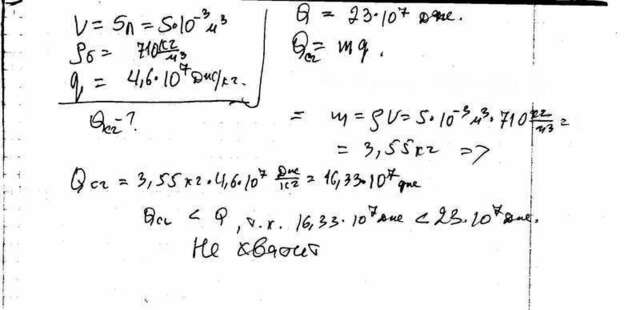 V = 5л = 5·10⁻³ м³
ρб = 710 кг/м³
q = 4,6·10⁷ Дж/кг.
Qсг - ?
Q = 23·10⁷ Дж.
Qсг = mq.
= m = ρV = 5·10⁻³ м³ · 710 кг/м³ =
= 3,55 кг =>
Qсг = 3,55 кг · 4,6·10⁷ Дж/кг = 16,33·10⁷ Дж
Qсг < Q, т.к. 16,33·10⁷ Дж < 23·10⁷ Дж.
Не хватит